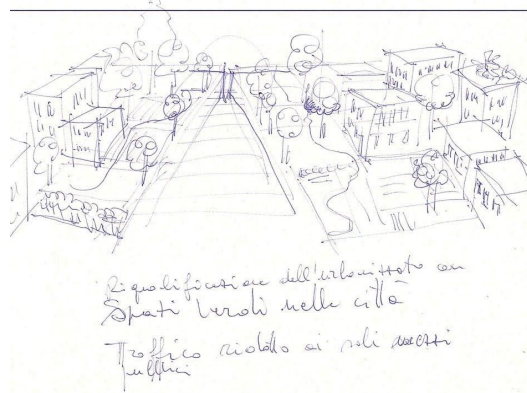 Riqualificazione dell'urbanizzato con
Spazi verdi nelle città
Traffico ridotto ai soli mezzi
pubblici